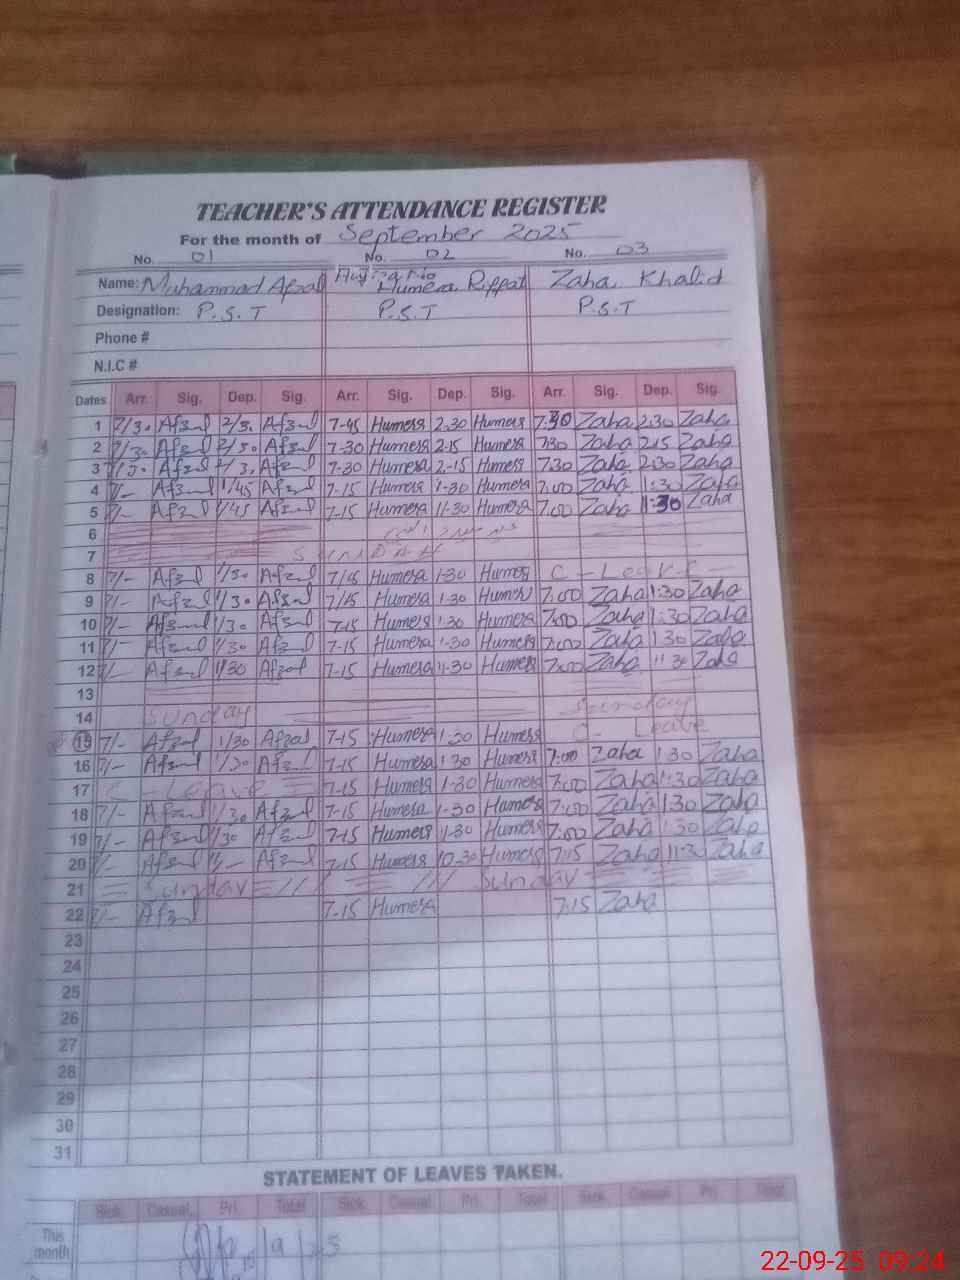 TEACHER'S ATTENDANCE REGISTER
For the month of September 2025
No. 01 No. 02 No. 03
Name: Muhammad Afzal Humera Riffat Zaha Khalid
Designation: P.S.T P.S.T P.S.T
Phone #
N.I.C #
Dates Arr. Sig. Dep. Sig. Arr. Sig. Dep. Sig. Arr. Sig. Dep. Sig.
1 7/30 Afzal 2/30 Afzal 7-45 Humera 2.30 Humera 7:30 Zaha 2:30 Zaha
2 7/30 Afzal 2/30 Afzal 7-30 Humera 2-15 Humera 7:30 Zaha 2:15 Zaha
3 7/30 Afzal Afzal 7-30 Humera 2-15 Humera 7:30 Zaha 2:30 Zaha
4 7/- Afzal 1/45 Afzal 7-15 Humera 1-30 Humera 7:00 Zaha 1:30 Zaha
5 7/- Afzal 1/45 Afzal 7-15 Humera 1-30 Humera 7:00 Zaha 1:30 Zaha
6
7 SUNDAY
8 7/- Afzal 1/30 Afzal 7/15 Humera 1-30 Humera C - Leave -
9 7/- Afzal 1/30 Afzal 7/15 Humera 1-30 Humera 7:00 Zaha 1:30 Zaha
10 7/- Afzal 1/30 Afzal 7-15 Humera 1-30 Humera 7:00 Zaha 1:30 Zaha
11 7/- Afzal 1/30 Afzal 7-15 Humera 1-30 Humera 7:00 Zaha 1:30 Zaha
12 7/- Afzal 1/30 Afzal 7-15 Humera 1-30 Humera 7:00 Zaha 1:30 Zaha
13
14 Sunday Sunday
15 7/- Afzal 1/30 Afzal 7-15 Humera 1-30 Humera C- Leave
16 7/- Afzal 1/30 Afzal 7-15 Humera 1-30 Humera 7:00 Zaha 1:30 Zaha
17 C - Leave 7-15 Humera 1-30 Humera 7:00 Zaha 1:30 Zaha
18 7/- Afzal 1/30 Afzal 7-15 Humera 1-30 Humera 7:00 Zaha 1:30 Zaha
19 7/- Afzal 1/30 Afzal 7-15 Humera 1-30 Humera 7:00 Zaha 1:30 Zaha
20 7/- Afzal Afzal 7-15 Humera 10-30 Humera 7:15 Zaha 11:30 Zaha
21 Sunday Sunday
22 7/- Afzal 7-15 Humera 7:15 Zaha
23
24
25
26
27
28
29
30
31
STATEMENT OF LEAVES TAKEN.
Sick. Casual. Pri. Total Sick. Casual. Pri. Total Sick. Casual Pri. Total
This month
22-09-25 09:24